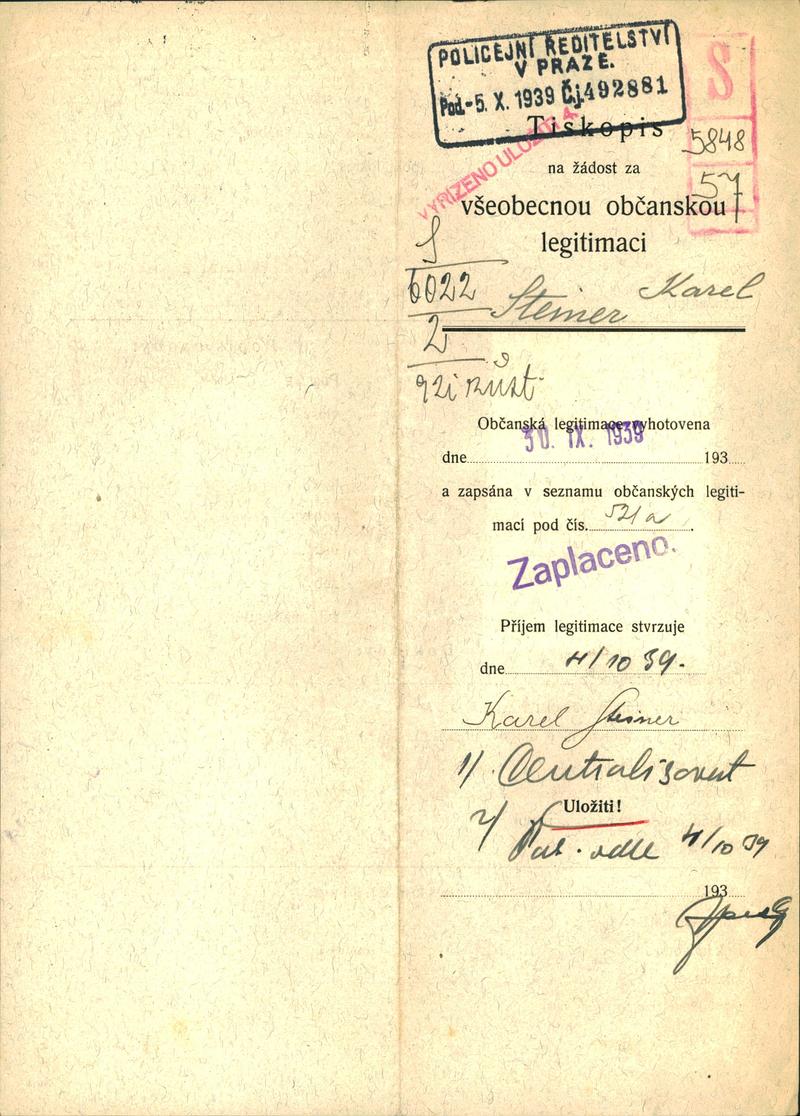 POLICEJNÍ ŘEDITELSTVÍ
V PRAZE.
Pod. -5. X. 1939 Č.j. 492881
S
5848
57
Tiskopis
VYŘÍZENO ULOŽITI
na žádost za
všeobecnou občanskou
legitimaci
S
6022
2
Steiner Karel
Občanská legitimace vyhotovena
30. IX. 1939
dne 193
a zapsána v seznamu občanských legiti-
mací pod čís. 521a.
Zaplaceno.
Příjem legitimace stvrzuje
dne 4/10 39.
Karel Steiner
1/ Centralisovat
Uložiti!
2/
4/10 39
193